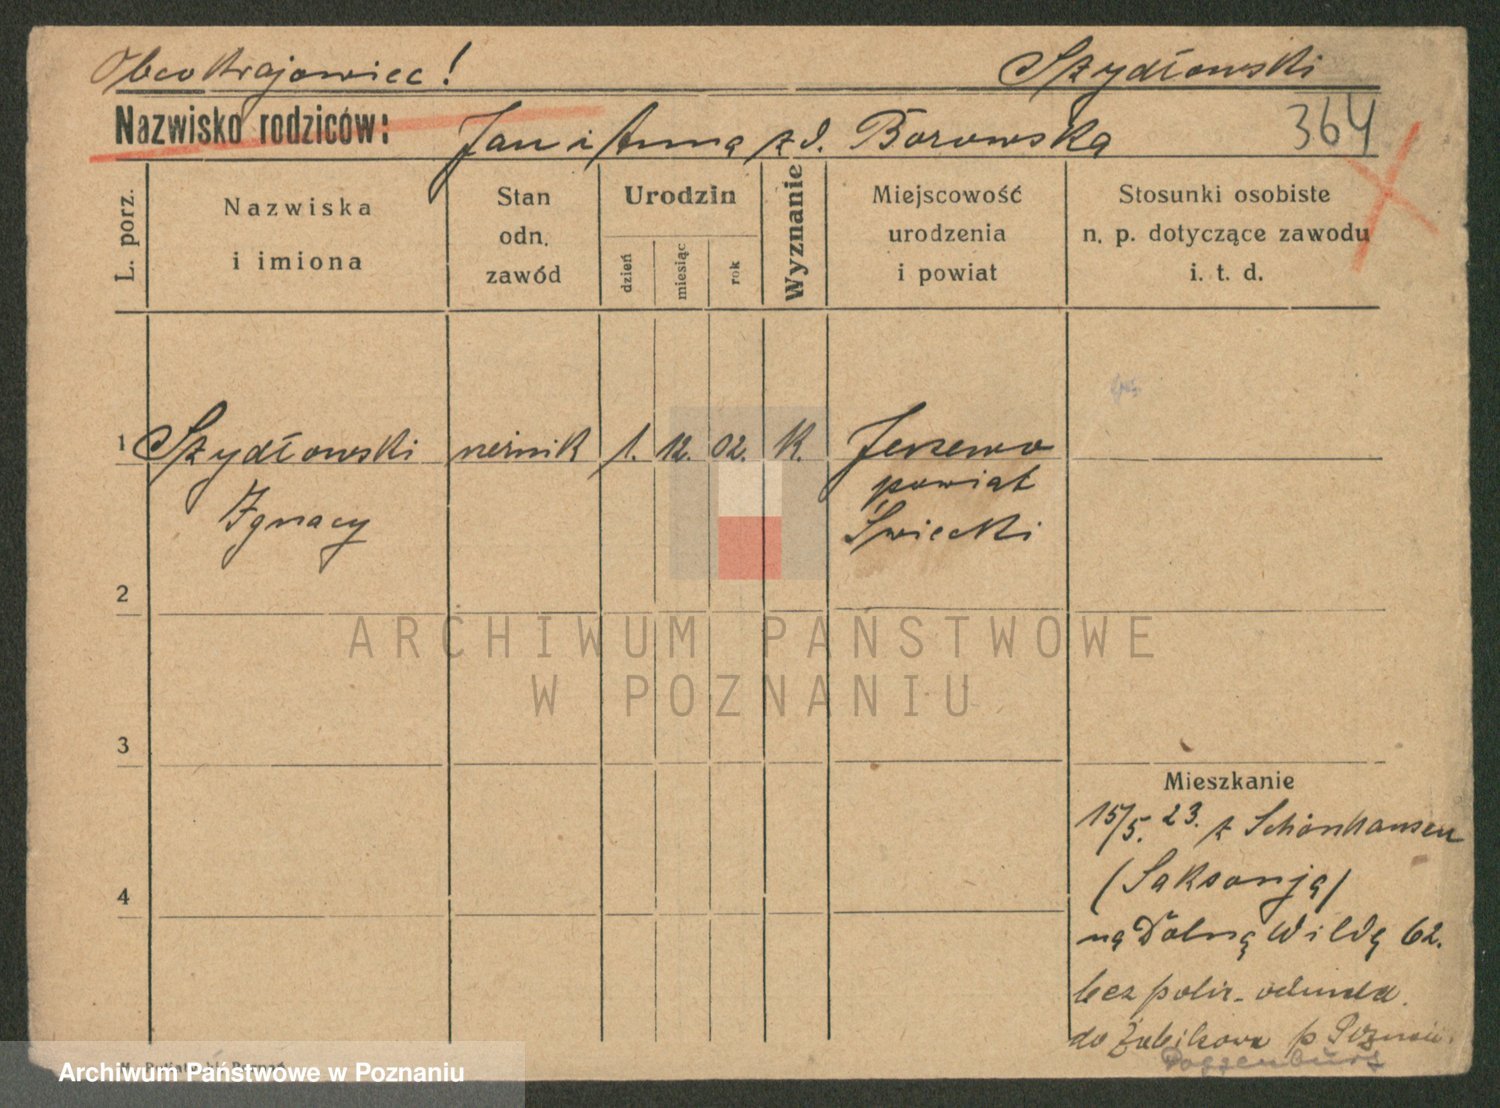 Obcokrajowiec! Szydłowski
Nazwisko rodziców: Jan i Anna zd. Borowska 364
L. porz.
Nazwiska
i imiona
Stan
odn.
zawód
Urodzin
dzień
miesiąc
rok
Wyznanie
Miejscowość
urodzenia
i powiat
Stosunki osobiste
n. p. dotyczące zawodu
i. t. d.
1 Szydłowski 1. 12. 02. K. Jerzewo
Ignacy
powiat
Świecki
2
3
4
ARCHIWUM PAŃSTWOWE
W POZNANIU
Mieszkanie
15/5. 23. z Schönhausen
(Saksonja)
na Dolną Wildę 62.
bez policz.
do Żabikowa p Poznań
Archiwum Państwowe w Poznaniu